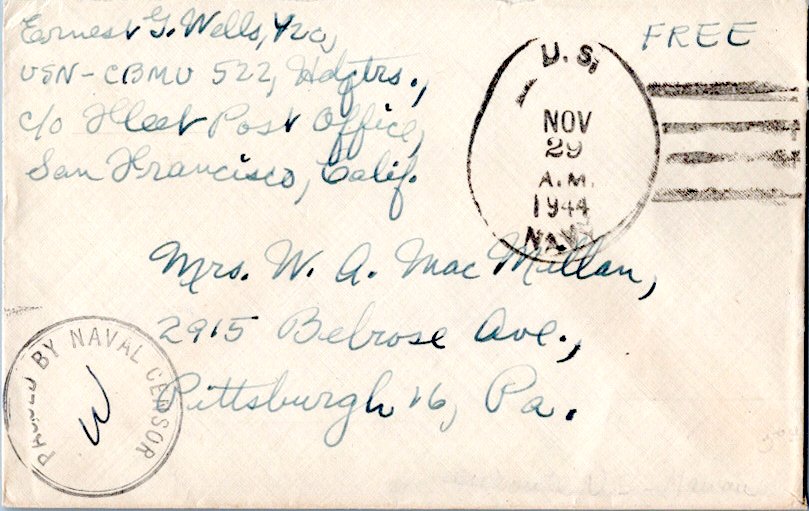 Earnest G. Wells, Y2c,
USN-CBMU 522, Hdqtrs.,
c/o Fleet Post Office,
San Francisco, Calif.
FREE
U.S.
NOV
29
A.M.
1944
NAVY
Mrs. W. A. Mac Millan,
2915 Belrose Ave.,
Pittsburgh 16, Pa.
PASSED BY NAVAL CENSOR
W